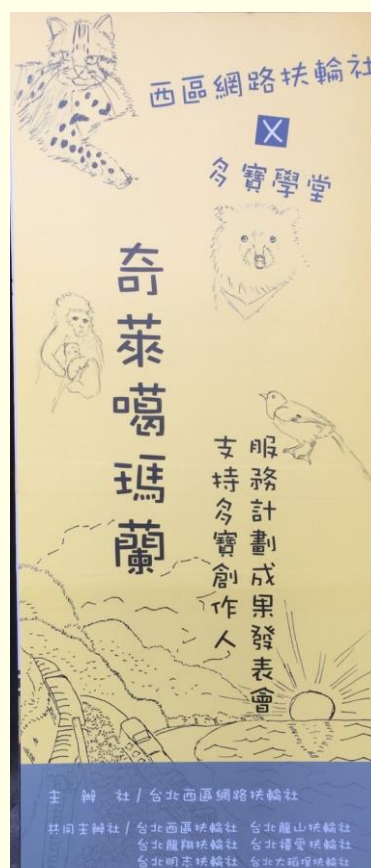 西區網路扶輪社
X
多寶學堂
奇萊噶瑪蘭
服務計劃成果發表會
支持多寶創作人
主辦社/台北西區網路扶輪社
共同主辦社/台北西區扶輪社 台北龍山扶輪社
台北龍翔扶輪社 台北禧愛扶輪社
台北明志扶輪社 台北大稻埕扶輪社